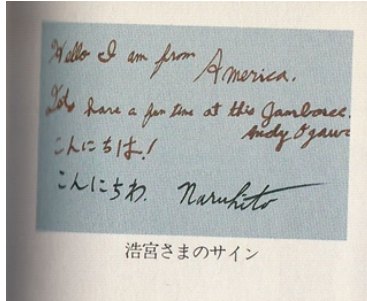 Hello I am from America.
Lets have a fun time at this Jamboree.
Andy Ogawa
こんにちは!
こんにちわ. Naruhito
浩宮さまのサイン